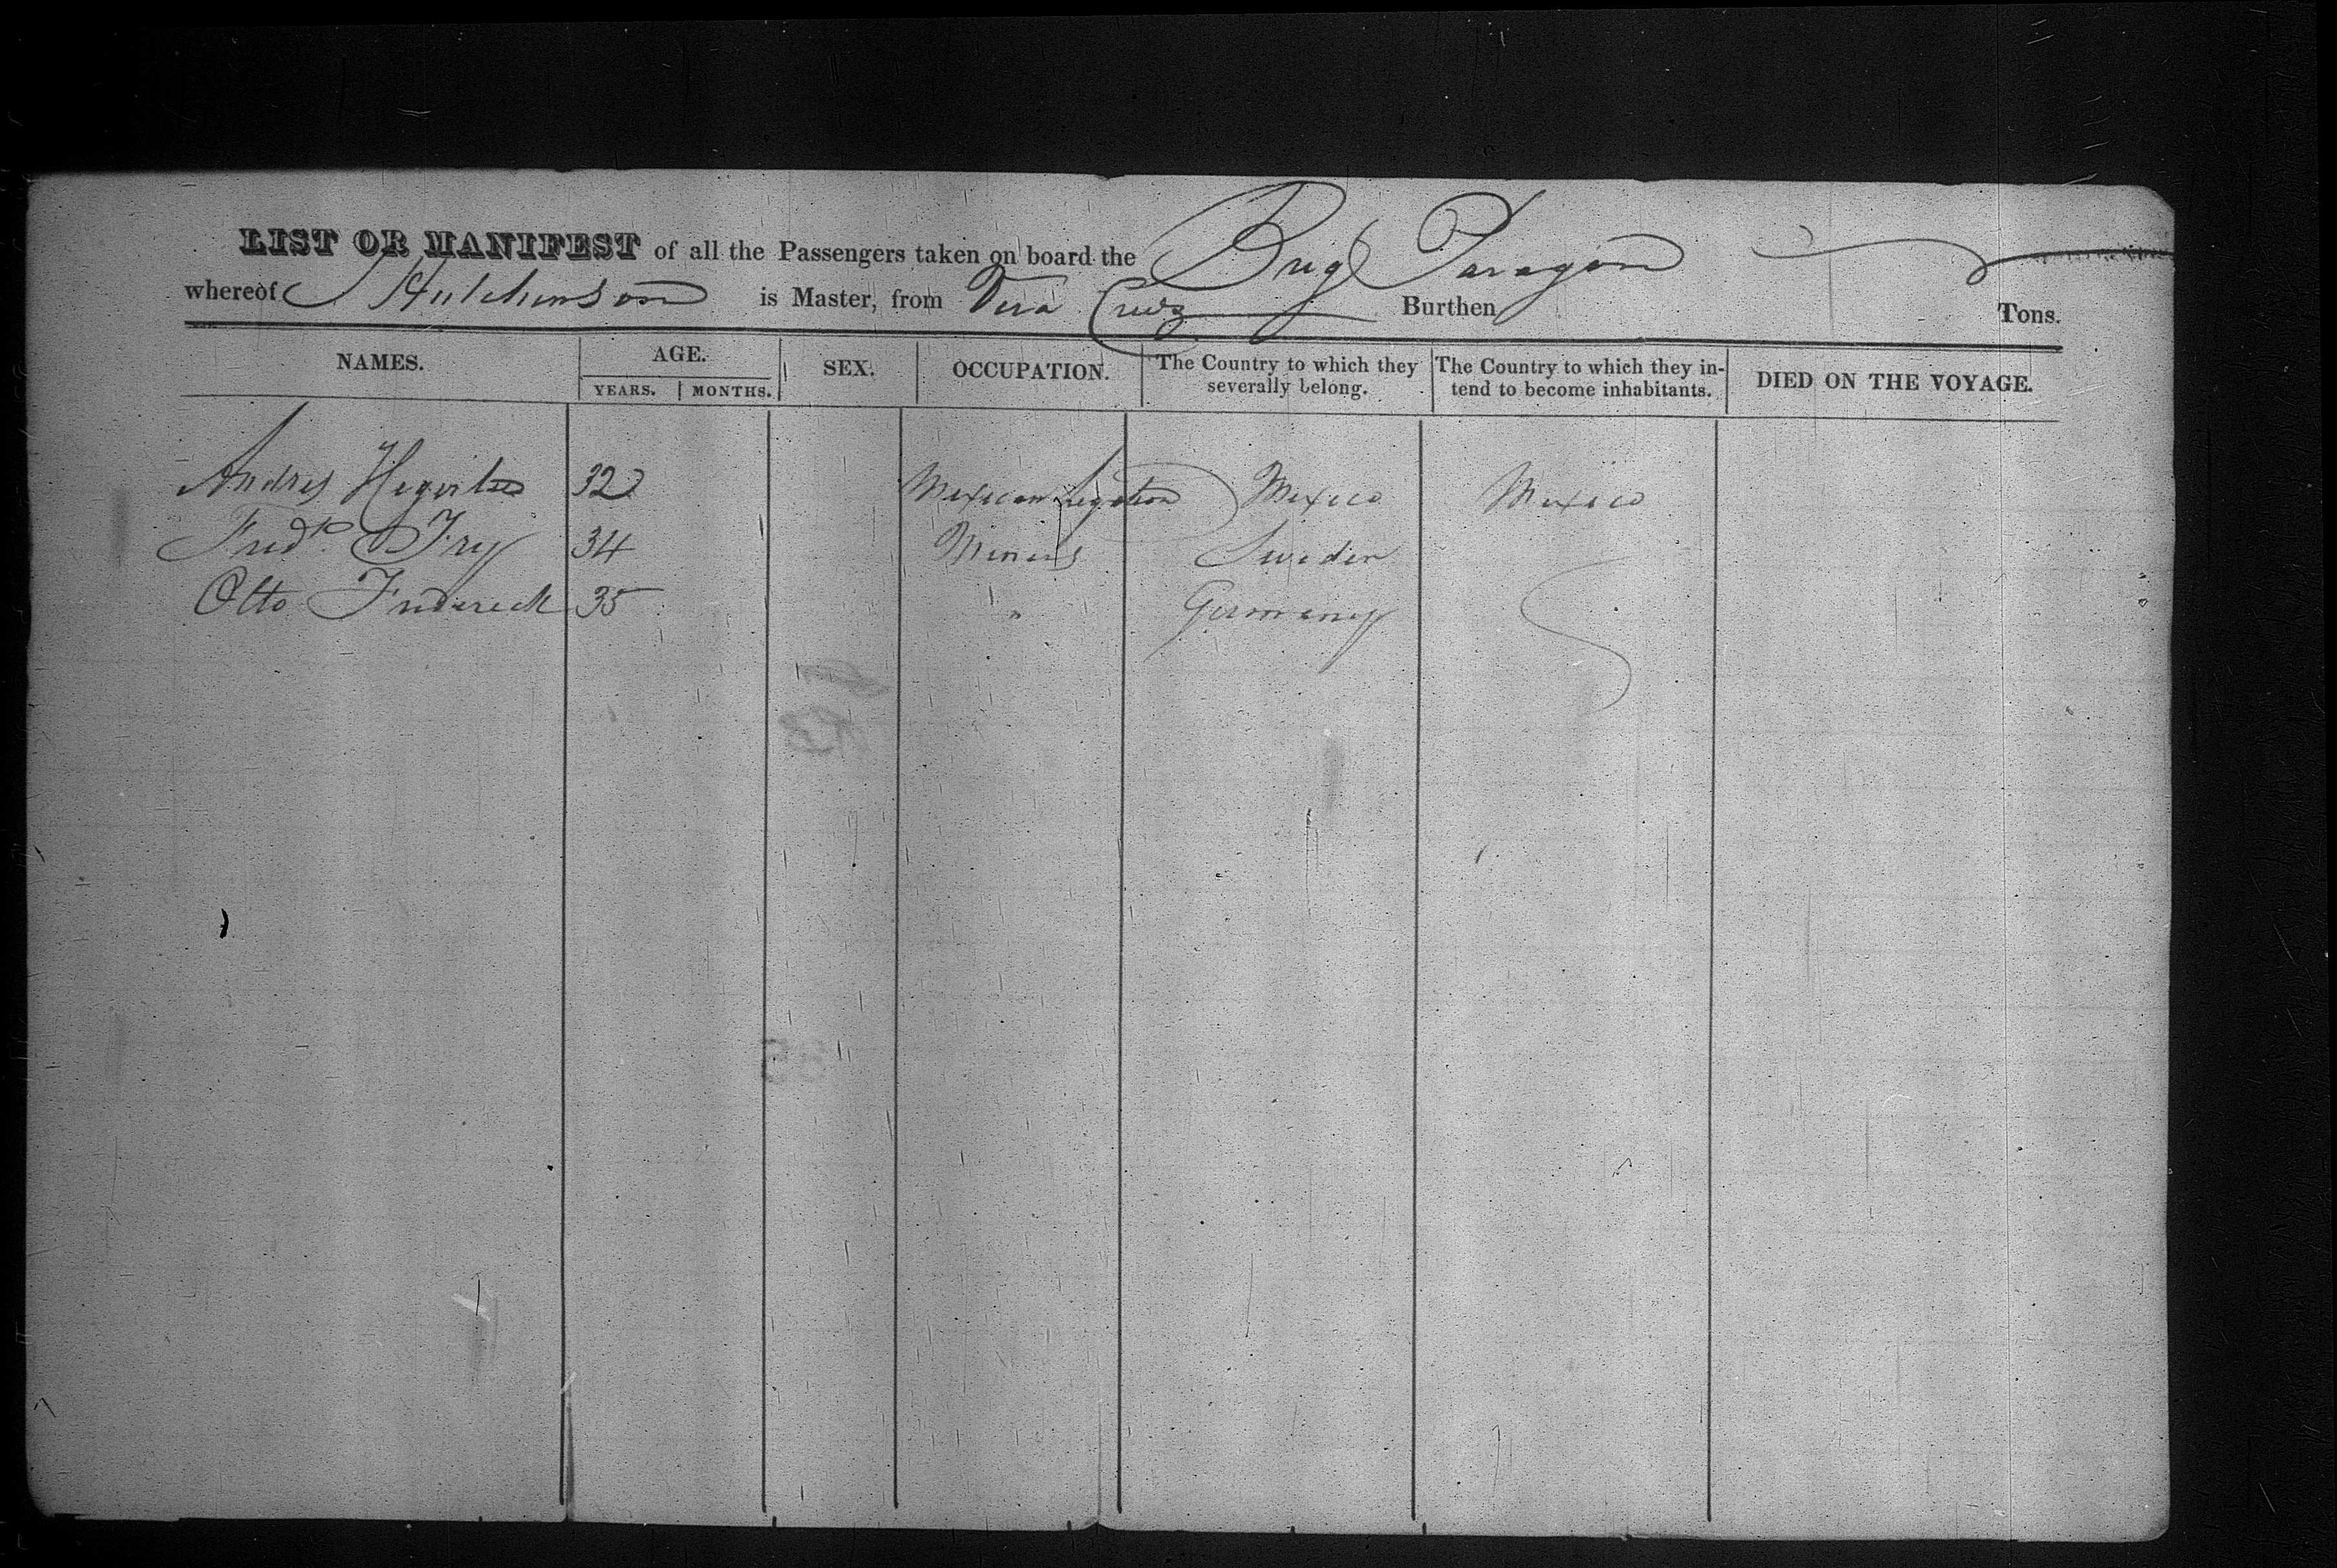 LIST OR MANIFEST of all the Passengers taken on board the Brig Paragon
whereof Hutchinson is Master, from Vera Cruz Burthen Tons.
NAMES. AGE. YEARS. MONTHS. SEX. OCCUPATION. The Country to which they severally belong. The Country to which they intend to become inhabitants. DIED ON THE VOYAGE.
Andres 32 Mexican Legation Mexico Mexico
Fredk. Fry 34 Miners Sweden
Otto Frederick 35 " Germany